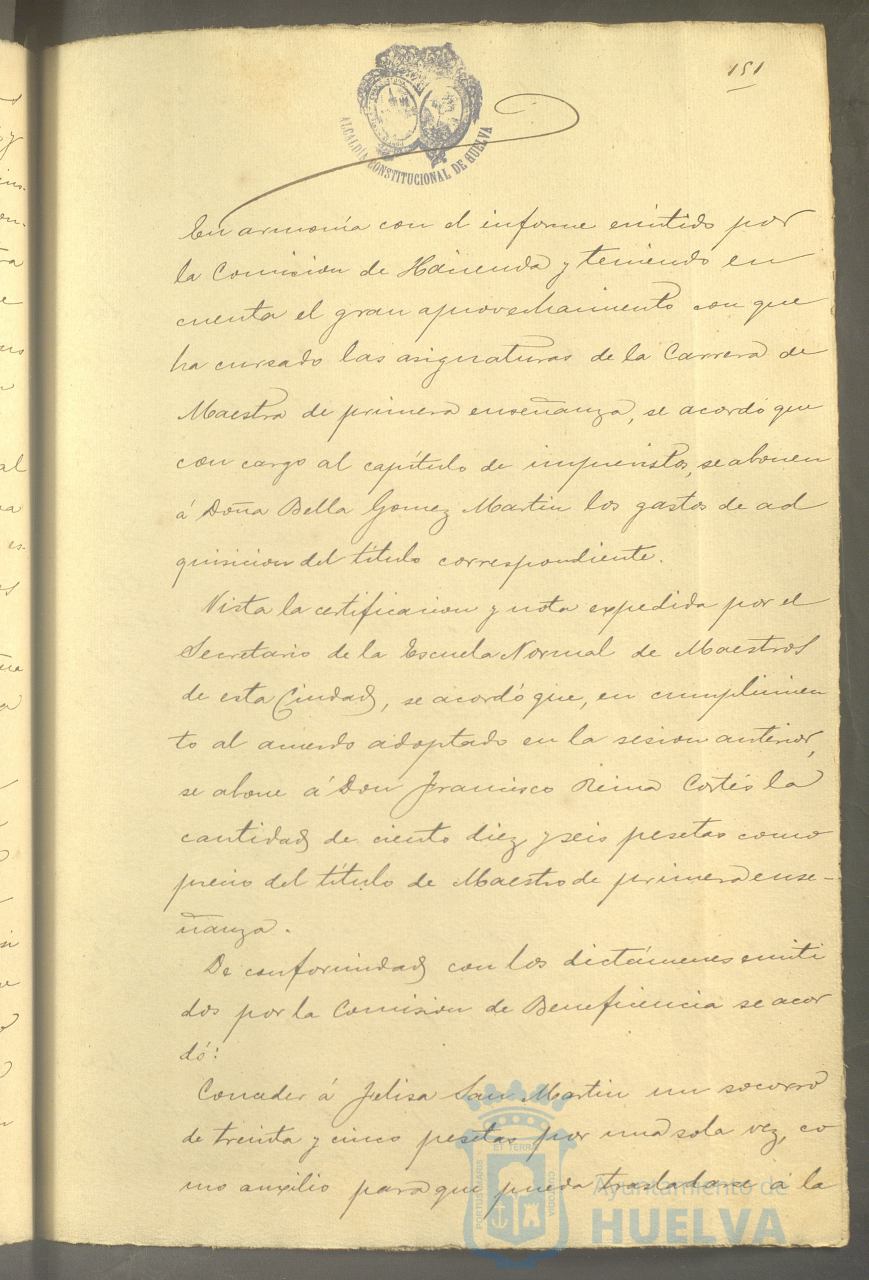 151
ALCALDÍA CONSTITUCIONAL DE HUELVA
En armonía con el informe emitido por
la Comision de Hacienda y teniendo en
cuenta el gran aprovechamiento con que
ha cursado las asignaturas de la Carrera de
Maestra de primera enseñanza, se acordó que
con cargo al capítulo de imprevistos, se abonen
á Doña Bella Gomez Martin los gastos de ad
quisicion del título correspondiente.
Vista la certificacion y nota expedida por el
Secretario de la Escuela Normal de Maestros
de esta Ciudad, se acordó que, en cumplimien
to al acuerdo adoptado en la sesion anterior,
se abone á Don Francisco Reina Cortés la
cantidad de ciento diez y seis pesetas como
precio del título de Maestro de primera ense-
ñanza.
De conformidad con los dictámenes emiti
dos por la Comision de Beneficencia se acor
dó:
Conceder á Felisa San Martin un socorro
de treinta y cinco pesetas por una sola vez, co
mo auxilio para que pueda trasladarse á la
PORTUS MARIS ET TERRAE CUSTODIA
Ayuntamiento de
HUELVA